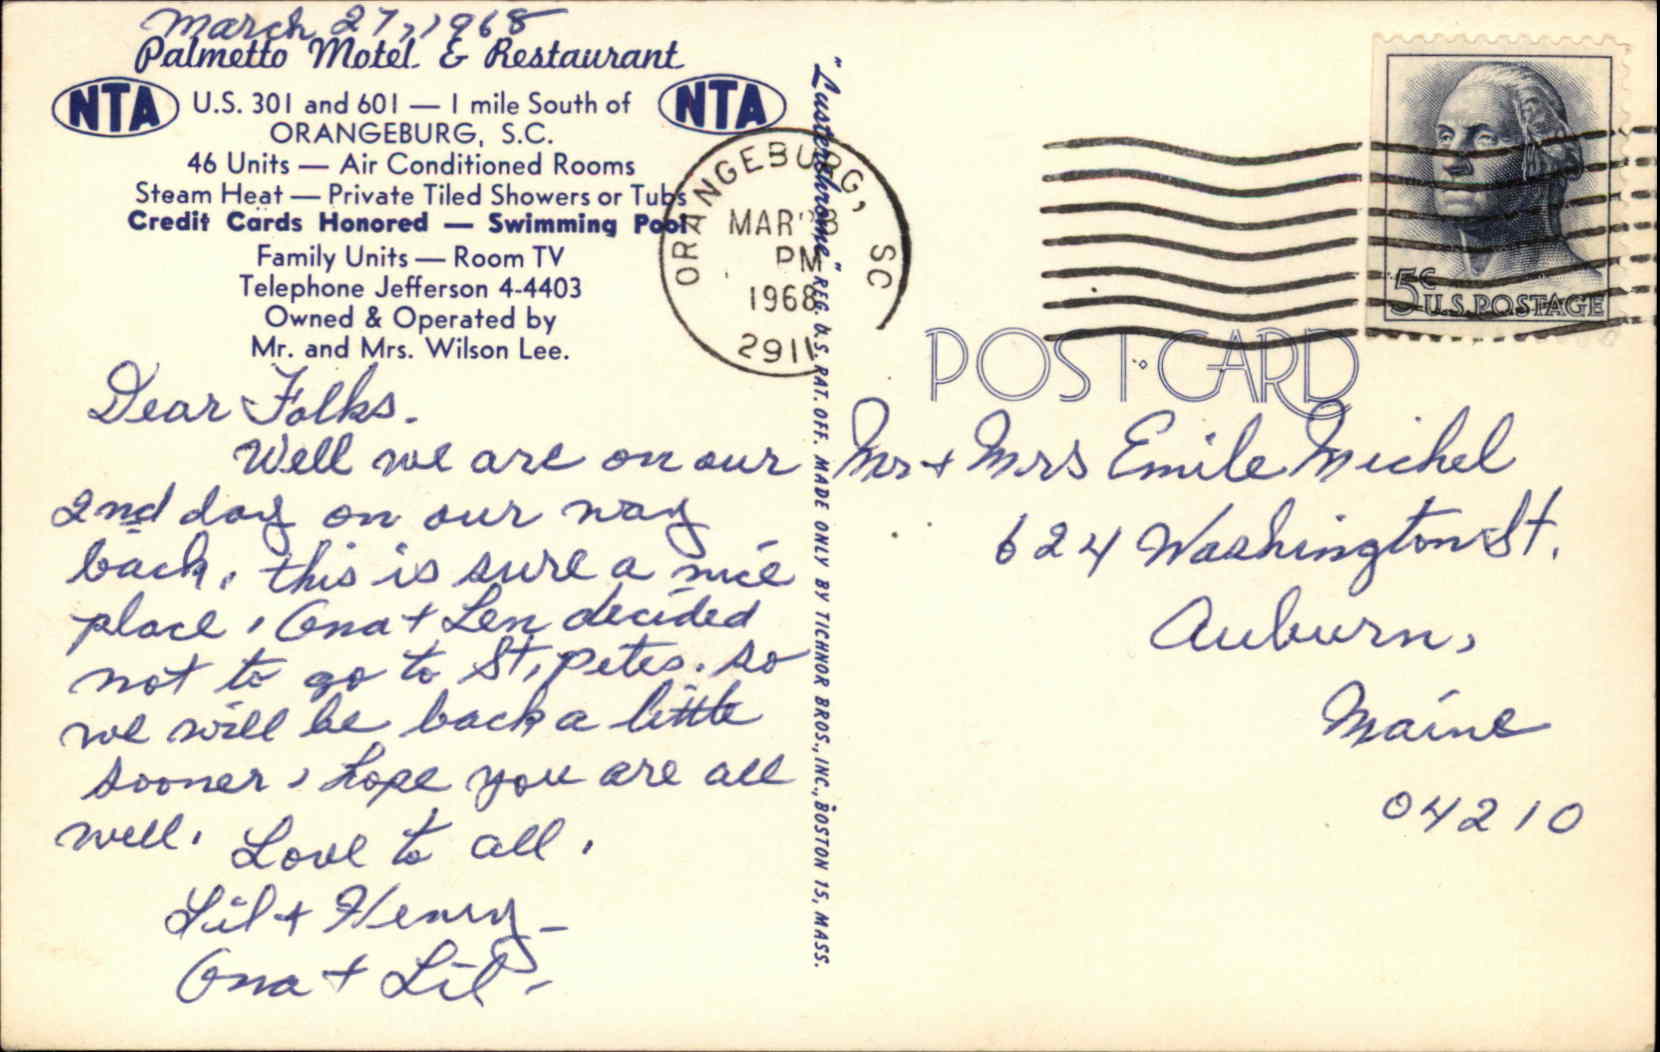 March 27, 1968
Palmetto Motel & Restaurant
NTA U.S. 301 and 601 — 1 mile South of NTA
ORANGEBURG, S.C.
46 Units — Air Conditioned Rooms
Steam Heat — Private Tiled Showers or Tubs
Credit Cards Honored — Swimming Pool
Family Units — Room TV
Telephone Jefferson 4-4403
Owned & Operated by
Mr. and Mrs. Wilson Lee.
Dear Folks.
Well we are on our
2nd day on our way
back, this is sure a nice
place, Ona + Len decided
not to go to St, petes. so
we will be back a little
sooner, hope you are all
well. Love to all.
Lil + Henry -
Ona + Lil -
"Lusterchrome" REG. U.S. PAT. OFF. MADE ONLY BY TICHNOR BROS., INC., BOSTON 15, MASS.
ORANGEBURG, SC
MAR 28
PM
1968
2911
5¢
U.S. POSTAGE
POST CARD
Mr + Mrs Emile Michel
624 Washington St.
Auburn,
Maine
04210